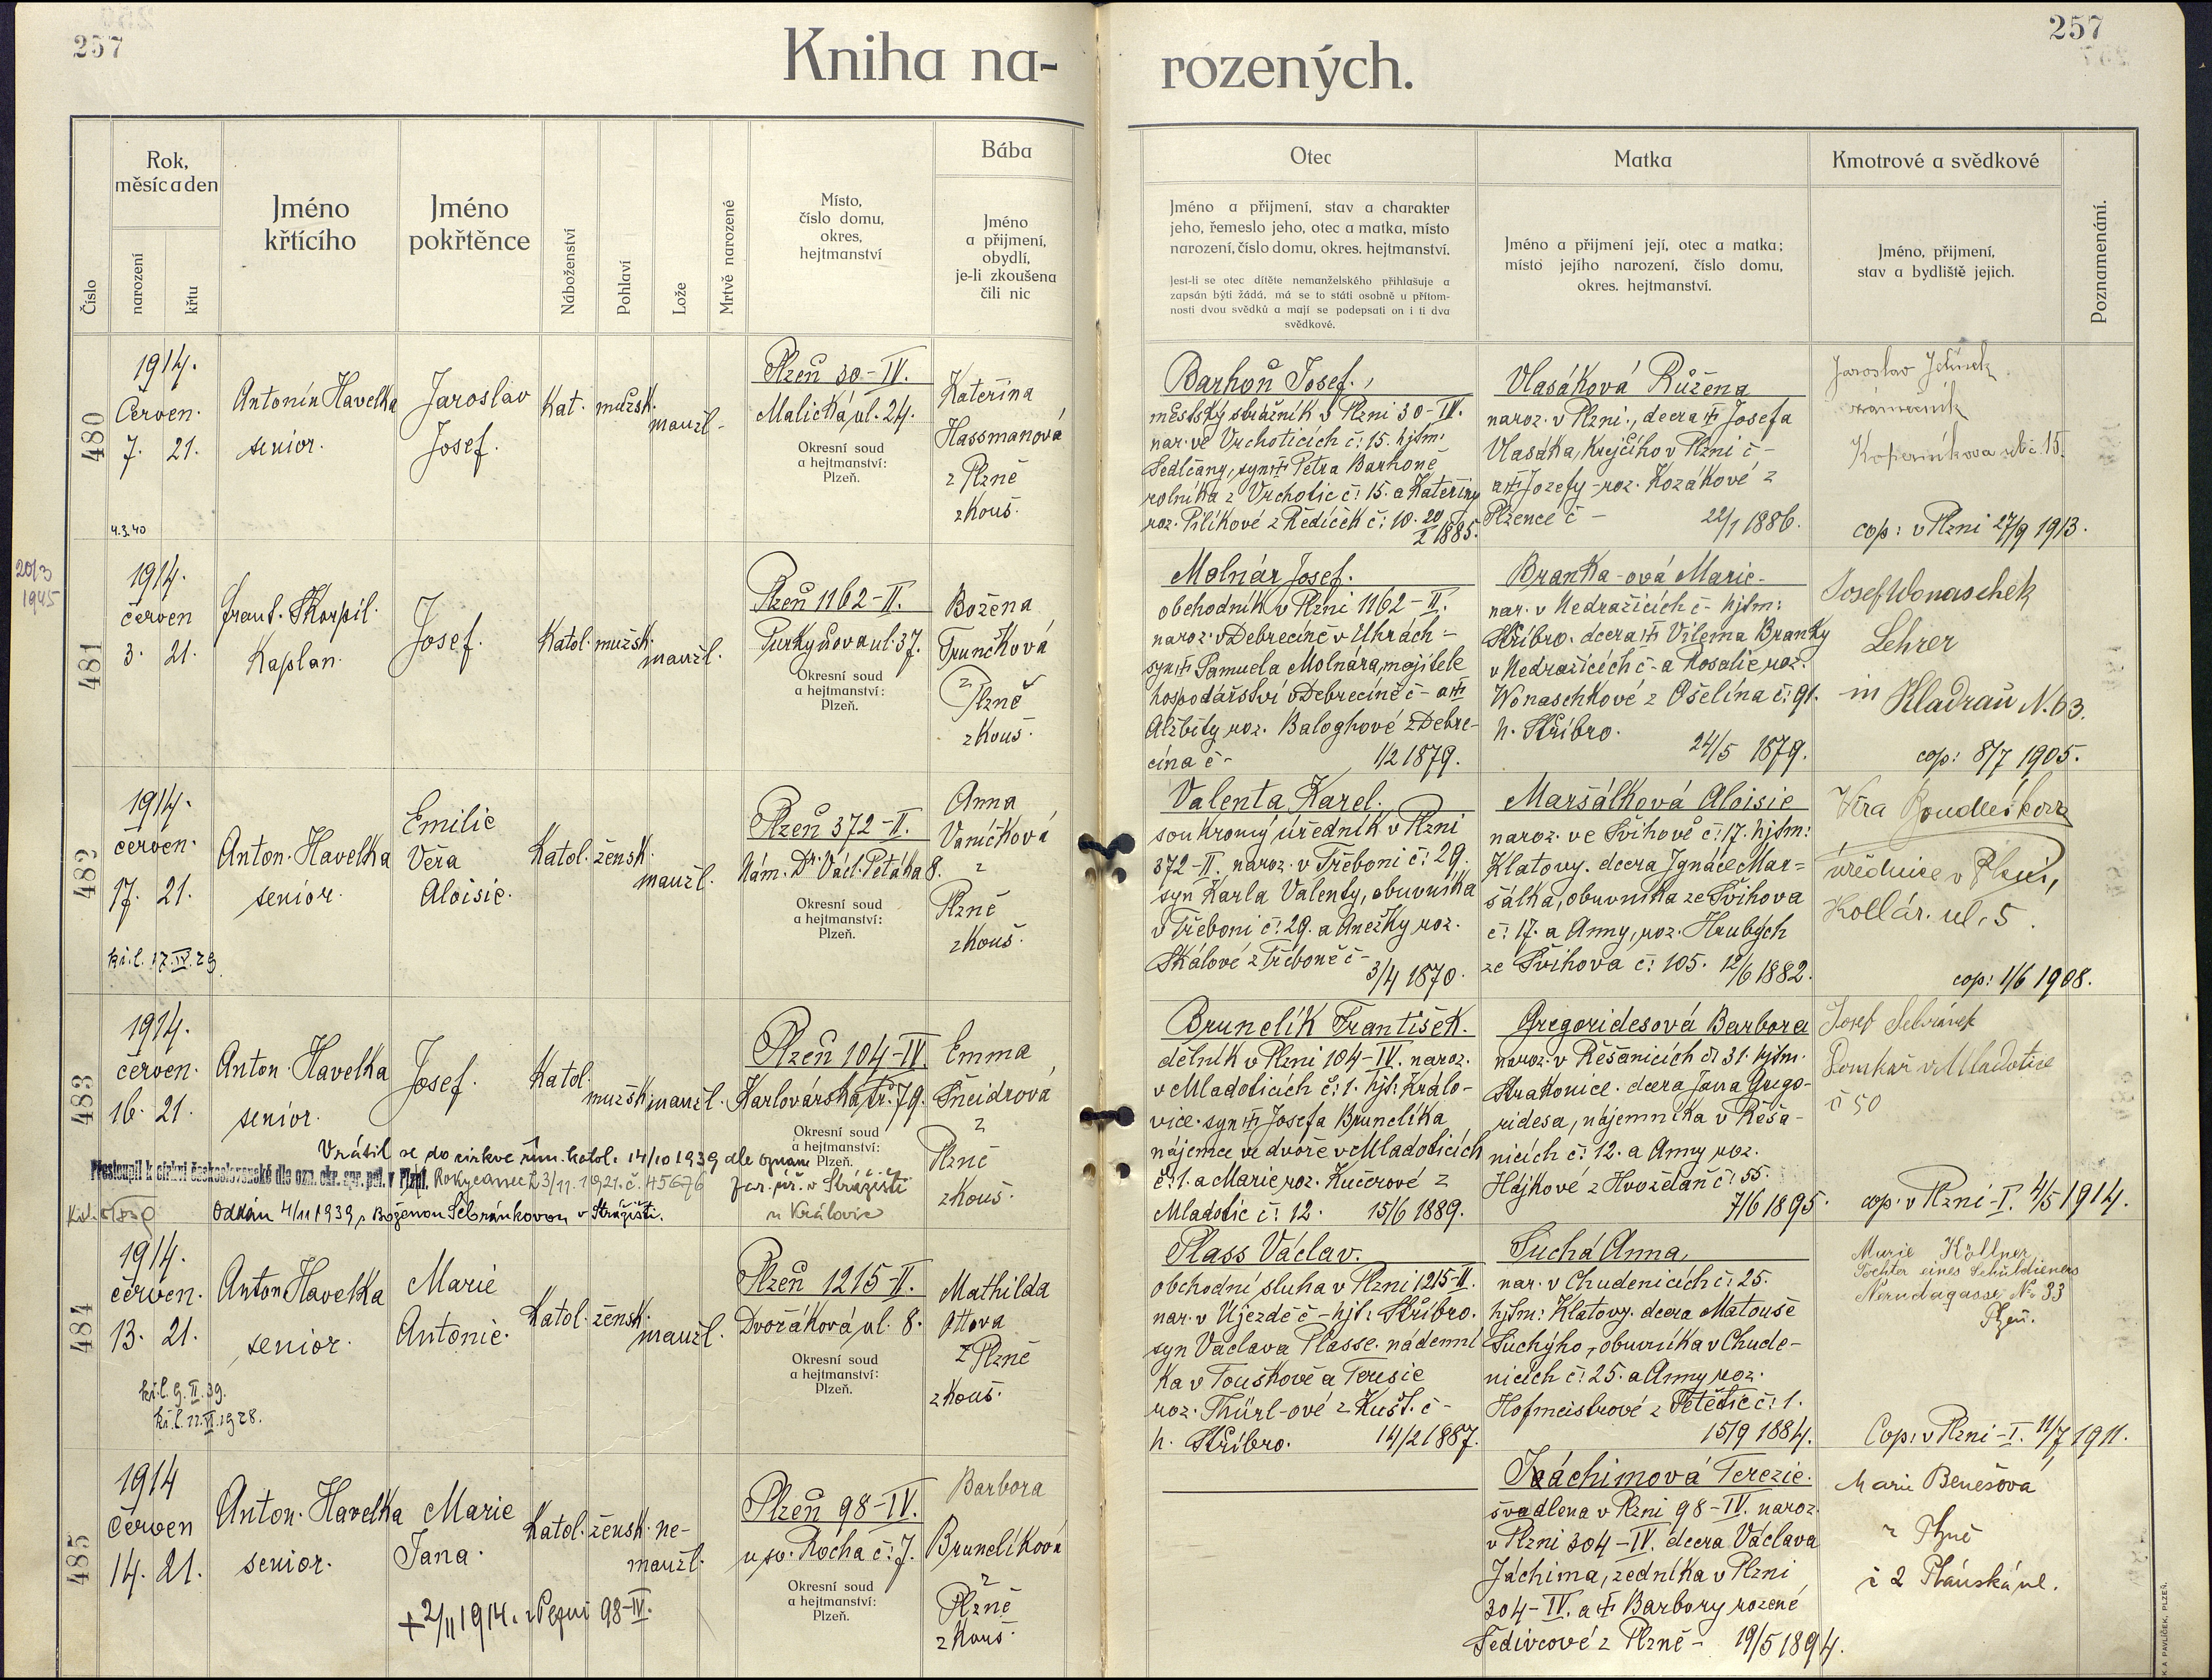 257
257
Kniha na-
rozených.
Číslo
Rok,
měsíc a den
narození
křtu
Jméno
křtícího
Jméno
pokřtěnce
Náboženství
Pohlaví
Lože
Mrtvě narozené
Místo,
číslo domu,
okres,
hejtmanství
Bába
Jméno
a příjmení,
obydlí,
je-li zkoušena
čili nic
Otec
Jméno a přijmení, stav a charakter
jeho, řemeslo jeho, otec a matka, místo
narození, číslo domu, okres. hejtmanství.
Jest-li se otec dítěte nemanželského přihlašuje a
zapsán býti žádá, má se to státi osobně u přítom-
nosti dvou svědků a mají se podepsati on i ti dva
svědkové.
Matka
Jméno a přijmení její, otec a matka;
místo jejího narození, číslo domu,
okres. hejtmanství.
Kmotrové a svědkové
Jméno, přijmení,
stav a bydliště jejich.
Poznamenání.
480
1914.
Červen.
7. 21.
4.3.40
Antonín Havelka
senior.
Jaroslav
Josef.
Kat. mužsk.
manžl.
Plzeň 30-IV.
Malická ul. 24.
Okresní soud
a hejtmanství:
Plzeň.
Kateřina
Hassmanová
z Plzně
zkouš.
Barhoň Josef.
městský strážník v Plzni 30-IV.
nar. ve Vrchoticích č: 15. hjtm:
Sedlčany, syn Petra Barhoně
rolníka z Vrchotic č: 15. a Kateřiny
roz. Pilíkové z Ředíček č: 10. 20/2 1885.
Vlasáková Růžena
naroz. v Plzni, dcera Josefa
Vlasáka, krejčího v Plzni č -
a Josefy roz. Kozákové z
Plzence č - 22/1 1886.
Jaroslav Jelínek
Koperníkova ul č. 15.
cop: v Plzni 27/9 1913.
20/3
1945
481
1914.
červen
3. 21.
frant. Škorpil
Kaplan.
Josef.
Katol. mužsk.
manžl.
Plzeň 1162-II.
Purkyňova ul. 37.
Okresní soud
a hejtmanství:
Plzeň.
Božena
Trunčková
z
Plzně
zkouš.
Molnár Josef.
obchodník v Plzni 1162-II.
naroz. v Debrecíně v Uhrách -
syn Samuela Molnára, majitele
hospodářství v Debrecíně č - a
Alžběty roz. Baloghové z Debre-
cína č - 1/2 1879.
Branka-ová Marie
nar. v Nedražicích č - hjtm:
Stříbro. dcera Viléma Branky
v Nedražicích č - a Rosalie roz.
Wonaschkové z Ošelína č: 91.
h. Stříbro.
24/5 1879.
Josef Wonaschek
Lehrer
in Kladrau N. 63.
cop: 8/7 1905.
482
1914.
červen.
17. 21.
kř. l. 17.IV.29
Anton. Havelka
senior.
Emilie
Věra
Aloisie.
Katol. žensk.
manžl.
Plzeň 372-II.
Nám. Dr. Václ. Petáka 8.
Okresní soud
a hejtmanství:
Plzeň.
Anna
Vaníčková
z
Plzně
zkouš.
Valenta Karel.
soukromý úředník v Plzni
372-II. naroz. v Třeboni č: 29.
syn Karla Valenty, obuvníka
v Třeboni č: 29. a Anežky roz.
Skálové z Třeboně č -
3/4 1870.
Maršálková Aloisie
naroz. ve Švihově č: 17. hjtm:
Klatovy. dcera Ignáce Mar=
šálka, obuvníka ze Švihova
č: 17. a Anny, roz. Hrubých
ze Švihova č: 105. 12/6 1882.
Věra
úřednice v Plzni,
Kollár. ul. 5.
cop: 1/6 1908.
483
1914.
červen.
16. 21.
Anton. Havelka
senior.
Josef.
Katol.
mužsk. manžl.
Plzeň 104-IV.
Karlovarská tř. 79.
Okresní soud
a hejtmanství:
Plzeň.
Emma
Šneidrová
z
Plzně
zkouš.
Vrátil se do církve řím. katol. 14/10 1939 dle oznám.
far. úř. v Strážišti
u Kralovic
Přestoupil k církvi československé dle ozn. okr. spr. pol. v Plzni. Rokycanech 3/11. 1921. č. 45676
Oddán 4/11 1939 s Boženou Sebránkovou v Strážišti.
Brunclík František.
dělník v Plzni 104-IV. naroz.
v Mladoticích č: 1. hjt: Králo-
vice. syn Josefa Brunclíka,
nájemce ve dvoře v Mladoticích
č: 1. a Marie roz. Kučerové z
Mladotic č: 12. 15/6 1889.
Gregoridesová Barbora
naroz. v Řešanicích č: 31. hjtm.
Strakonice. dcera Jana Grego-
ridesa, nájemníka v Řeša-
nicích č: 12. a Anny roz.
Hájkové z Hvožďan č: 55.
7/6 1895.
Josef Sebránek
Domkář v Mladotice
č 50
cop: v Plzni-I. 4/5 1914.
484
1914.
červen.
13. 21.
kř. l. 9.II.39.
kř. l. 11.VI.1928.
Anton Havelka
senior.
Marie
Antonie.
Katol. žensk.
manžl.
Plzeň 1215-II.
Dvořákova ul. 8.
Okresní soud
a hejtmanství:
Plzeň.
Mathilda
Ottova
z Plzně
zkouš.
Plass Václav.
obchodní sluha v Plzni 1215-II.
nar. v Újezdě č - hjt: Stříbro.
syn Václava Plasse. nádenní
ka v Touškově a Terezie
roz. Thürl-ové z Kušt. č -
h. Stříbro. 14/2 1887.
Suchá Anna
nar. v Chudenicích č: 25.
hjtm: Klatovy. dcera Matouše
Suchýho, obuvníka v Chude-
nicích č: 25. a Anny roz.
Hofmeistrové z Petětic č: 1.
15/9 1884.
Marie Köllner
Tochter eines Schuldieners
Nerudagasse No 33
Plzeň.
Cop: v Plzni-I. 11/7 1911.
485
1914
Červen
14. 21.
Anton. Havelka
senior.
Marie
Jana.
Katol. žensk. ne-
manžl.
Plzeň 98-IV.
u sv. Rocha č: 7.
Okresní soud
a hejtmanství:
Plzeň.
Barbora
Brunclíková
z
Plzně
zkouš.
+ 2/11 1914. v Plzni 98-IV.
Jáchimová Terezie.
švadlena v Plzni 98-IV. naroz.
v Plzni 304-IV. dcera Václava
Jáchima, zedníka v Plzni
304-IV. a Barbory rozené
Šedivcové z Plzně - 19/5 1894.
Marie Benešová
z Plzně
č 2 Plánská ul.
K. A. PAVLÍČEK, PLZEŇ.